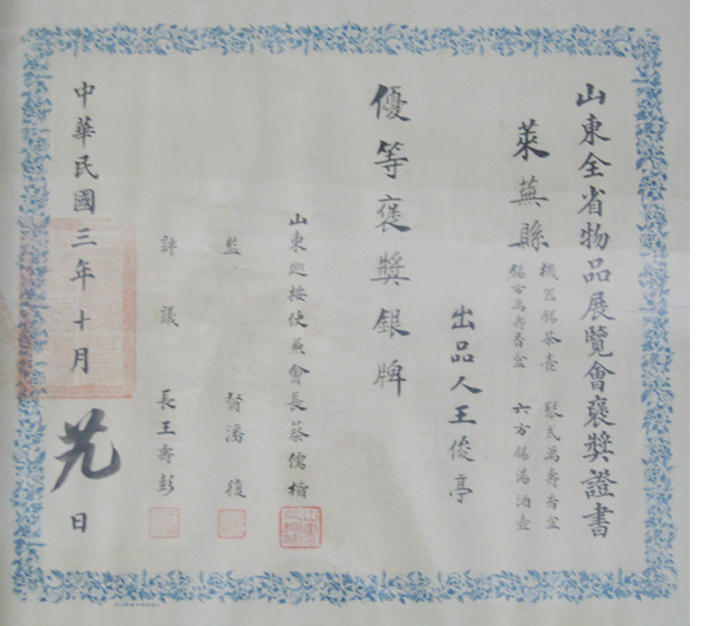 山東全省物品展覽會褒獎證書
萊蕪縣
機器錫茶壺 琴式萬壽香盒
錫方萬壽香盒 六方錫燙酒壺
出品人王俊亭
優等褒獎銀牌
山東巡按使兼會長蔡儒楷
監督潘復
評議長王壽彭
中華民國三年十月 日